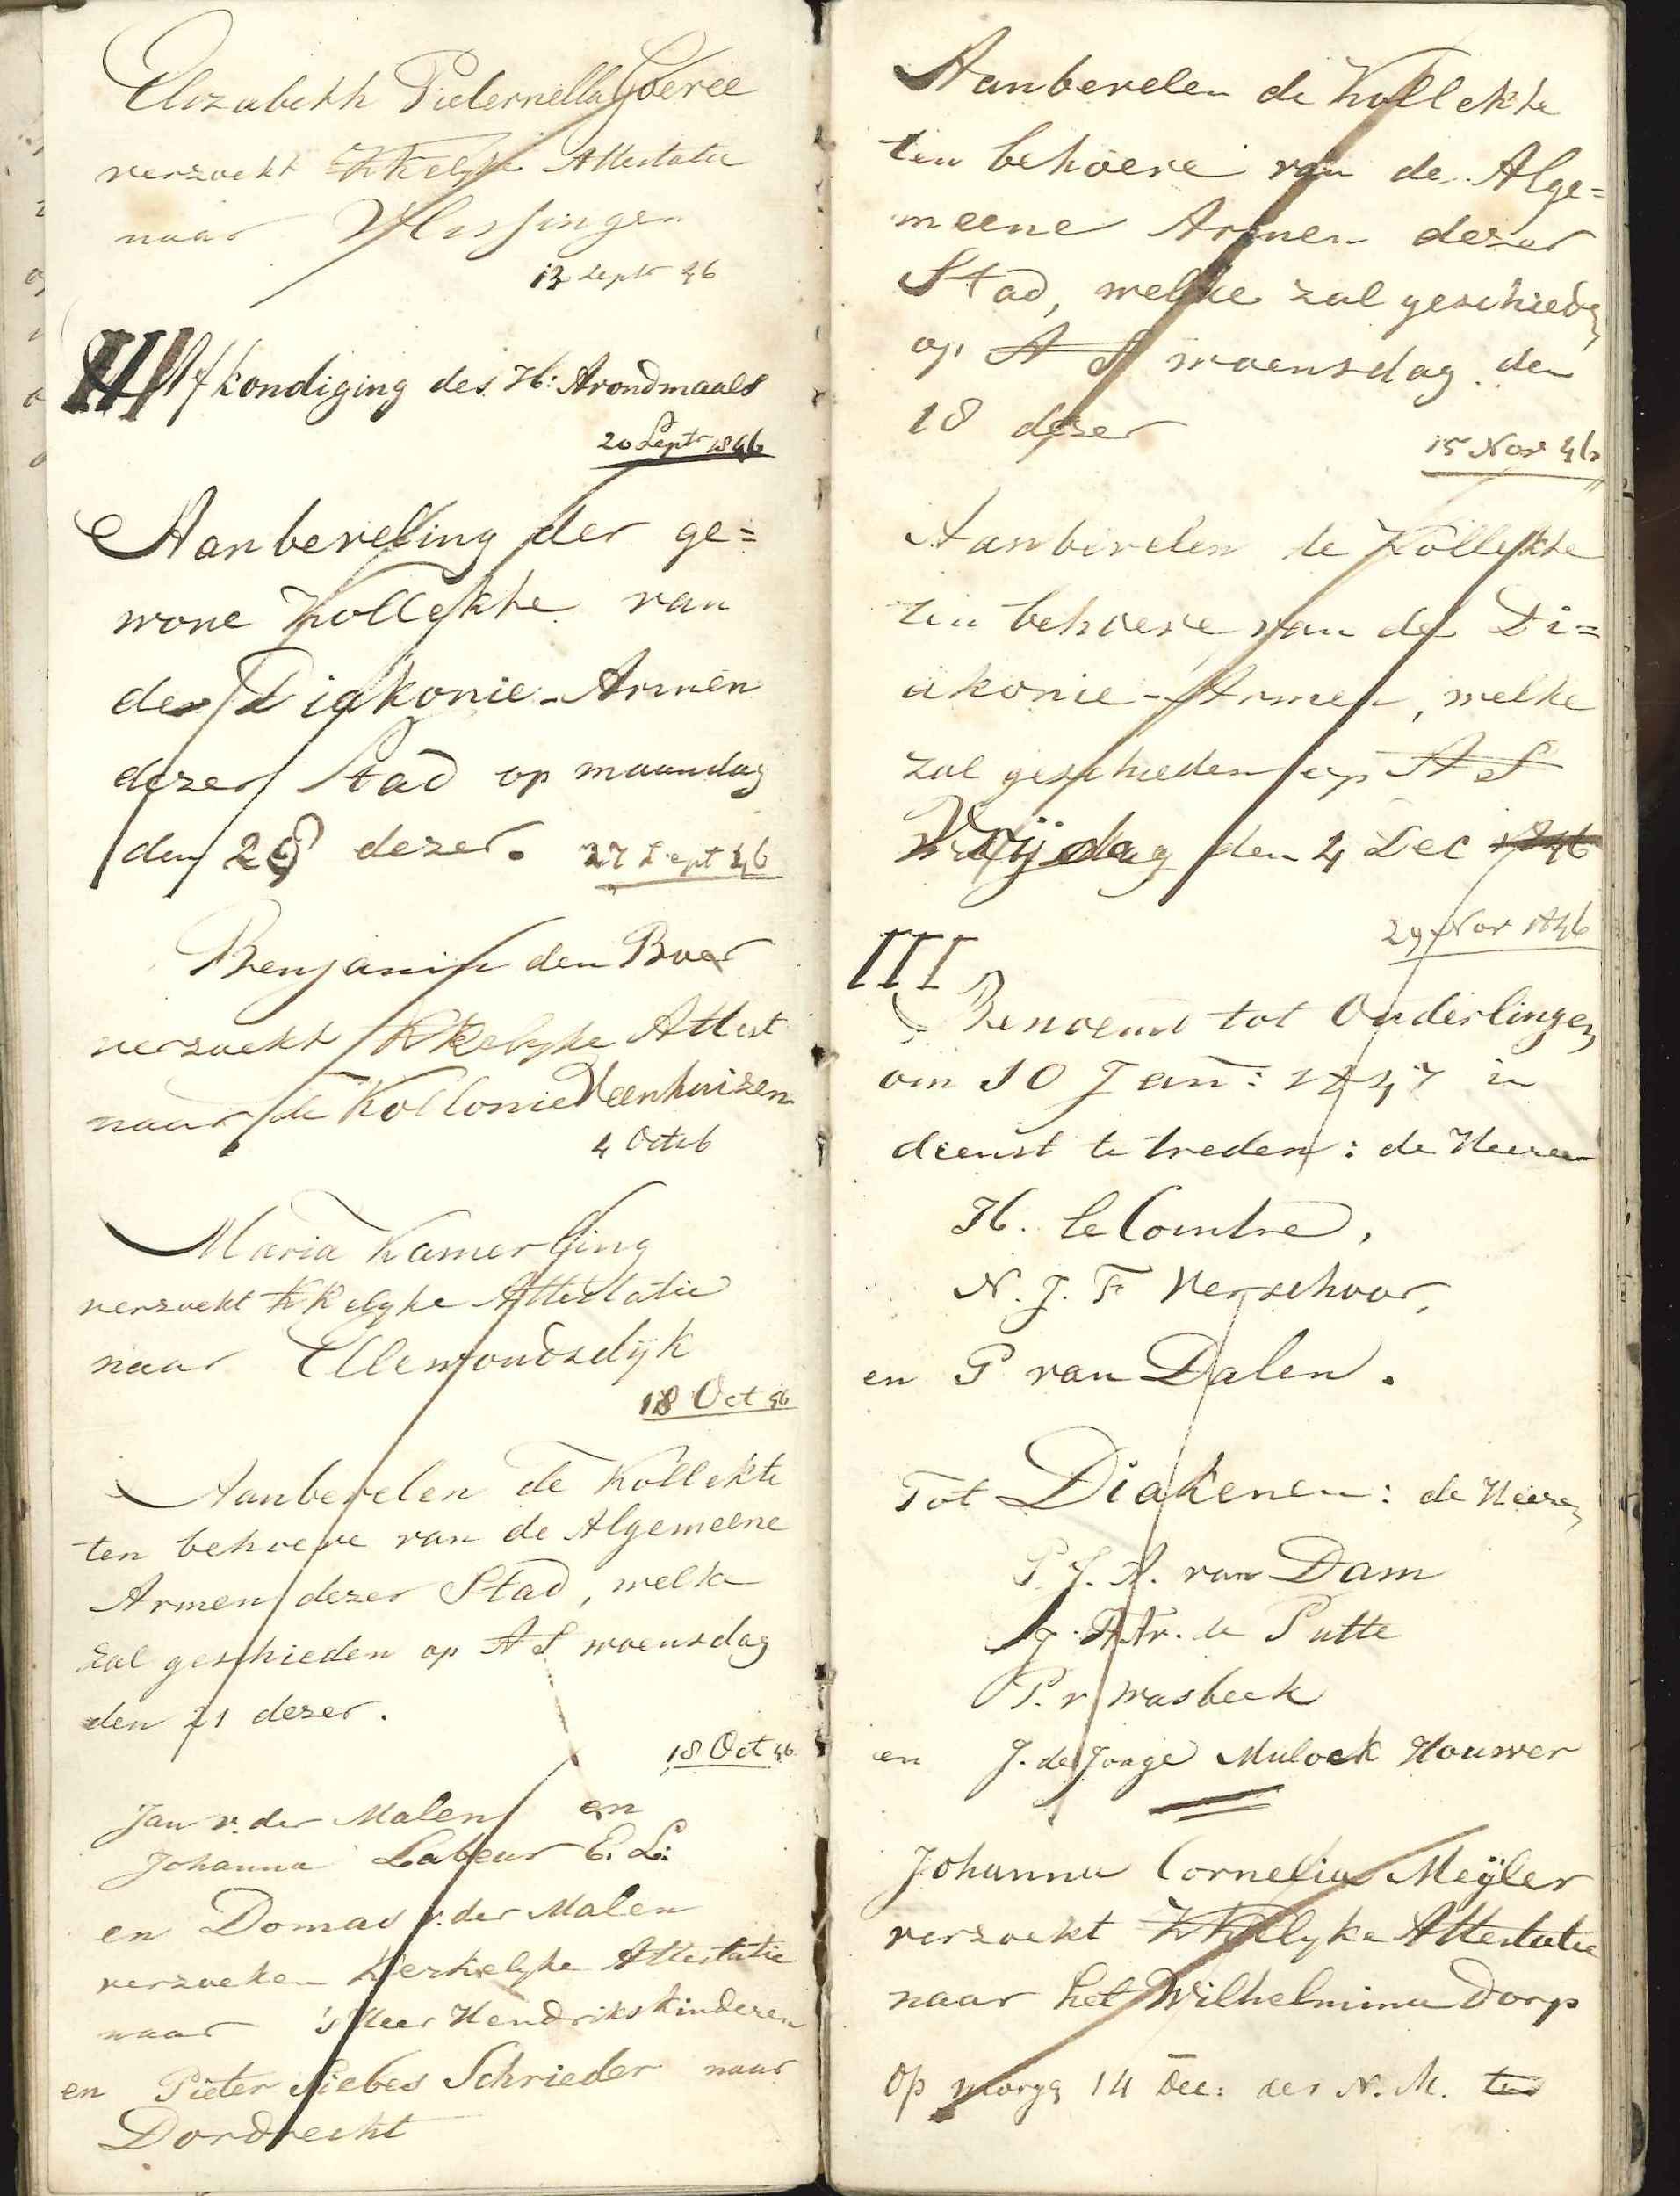 Elizabeth Pieternella Goeree
verzoekt Kkelyke Attestatie
naar Vlissingen
13 Septr 46
III Afkondiging des H: Avondmaals
20 Septr 1846
Aanbeveling der ge=
wone Kollekte van
de Diakonie-Armen
dezer Stad op maandag
den 28 dezer. 27 Sept 46
Benjamin den Boer
verzoekt Kkelyke Attest
naar de Kollonie Veenhuizen
4 Octob
Maria Kamerling
verzoekt Kkelyke Attestatie
naar Ellewoudsdijk
18 Oct 46
Aanbevelen de Kollekte
ten behoeve van de Algemeene
Armen dezer Stad, welke
zal geschieden op A S woensdag
den 21 dezer.
18 Oct 46
Jan v. der Malen en
Johanna Labeur E. L:
en Domas v. der Malen
verzoeken Kerkelyke Attestatie
naar 's Heer Hendrikskinderen
en Pieter Siebes Schrieder naar
Dordrecht
Aanbevelen de Kollekte
ten behoeve van de Alge=
meene Armen dezer
Stad, welke zal geschieden
op A S woensdag den
18 dezer
15 Nov 46
Aanbevelen de Kollekte
ten behoeve van de Di=
akonie-Armen, welke
zal geschieden op A S
Vrijdag den 4 Dec 1846
29 Nov 1846
III
Benoemd tot Ouderlingen
om 10 Jan: 1847 in
dienst te treden: de Heeren
H. le Cointre,
N. J. F Verschoor,
en P van Dalen.
Tot Diakenen: de Heeren
P. J. A. van Dam
J. de Putte
P. v Wasbeek
en J. de Jonge Mulock Houwer
Johanna Cornelia Meÿler
verzoekt Kkelyke Attestatie
naar het Wilhelmina Dorp
Op morgen 14 Dec: des N. M. ten